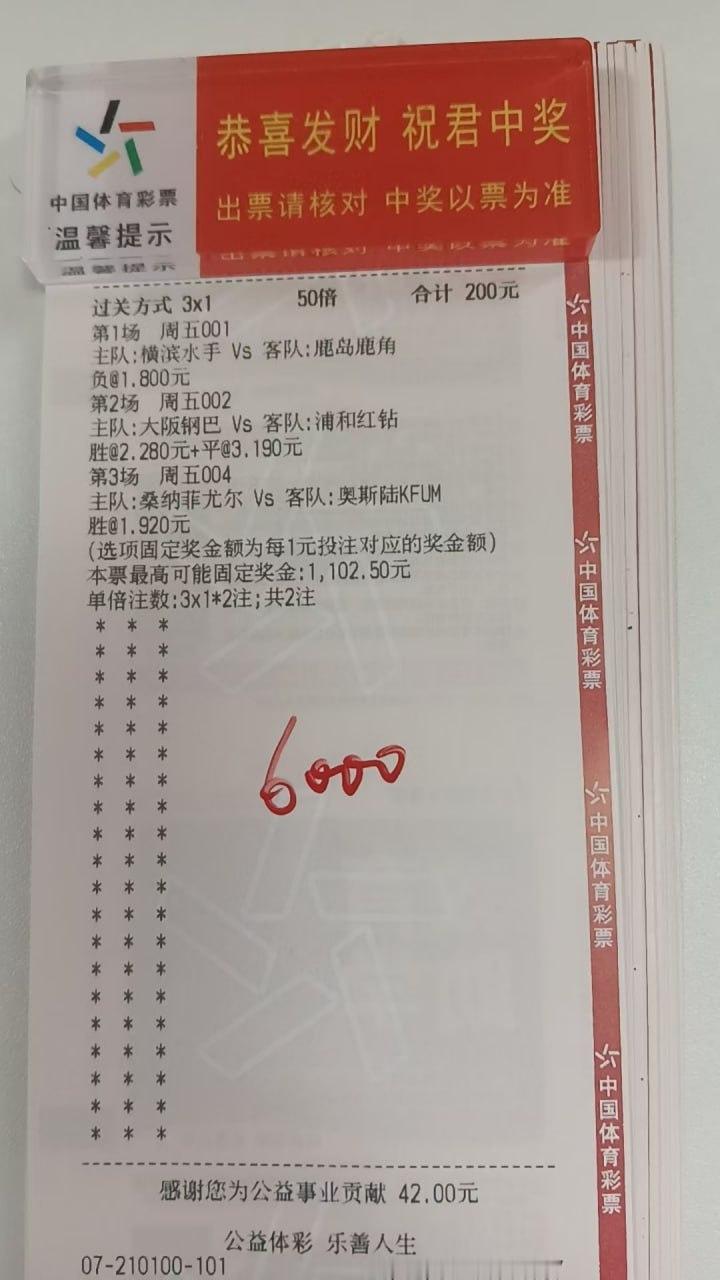 恭喜发财 祝君中奖
出票请核对 中奖以票为准
中国体育彩票
温馨提示
过关方式 3x1 50倍 合计 200元
第1场 周五001
主队:横滨水手 Vs 客队:鹿岛鹿角
负@1.800元
第2场 周五002
主队:大阪钢巴 Vs 客队:浦和红钻
胜@2.280元+平@3.190元
第3场 周五004
主队:桑纳菲尤尔 Vs 客队:奥斯陆KFUM
胜@1.920元
(选项固定奖金额为每1元投注对应的奖金额)
本票最高可能固定奖金:1,102.50元
单倍注数:3x1*2注;共2注
* * *
* * *
* * *
* * *
* * *
* * *
* * *
* * *
* * *
* * *
* * *
* * *
* * *
* * *
* * *
* * *
* * *
* * *
* * *
* * *
6000
感谢您为公益事业贡献 42.00元
公益体彩 乐善人生
07-210100-101
中国体育彩票
中国体育彩票
中国体育彩票
中国体育彩票